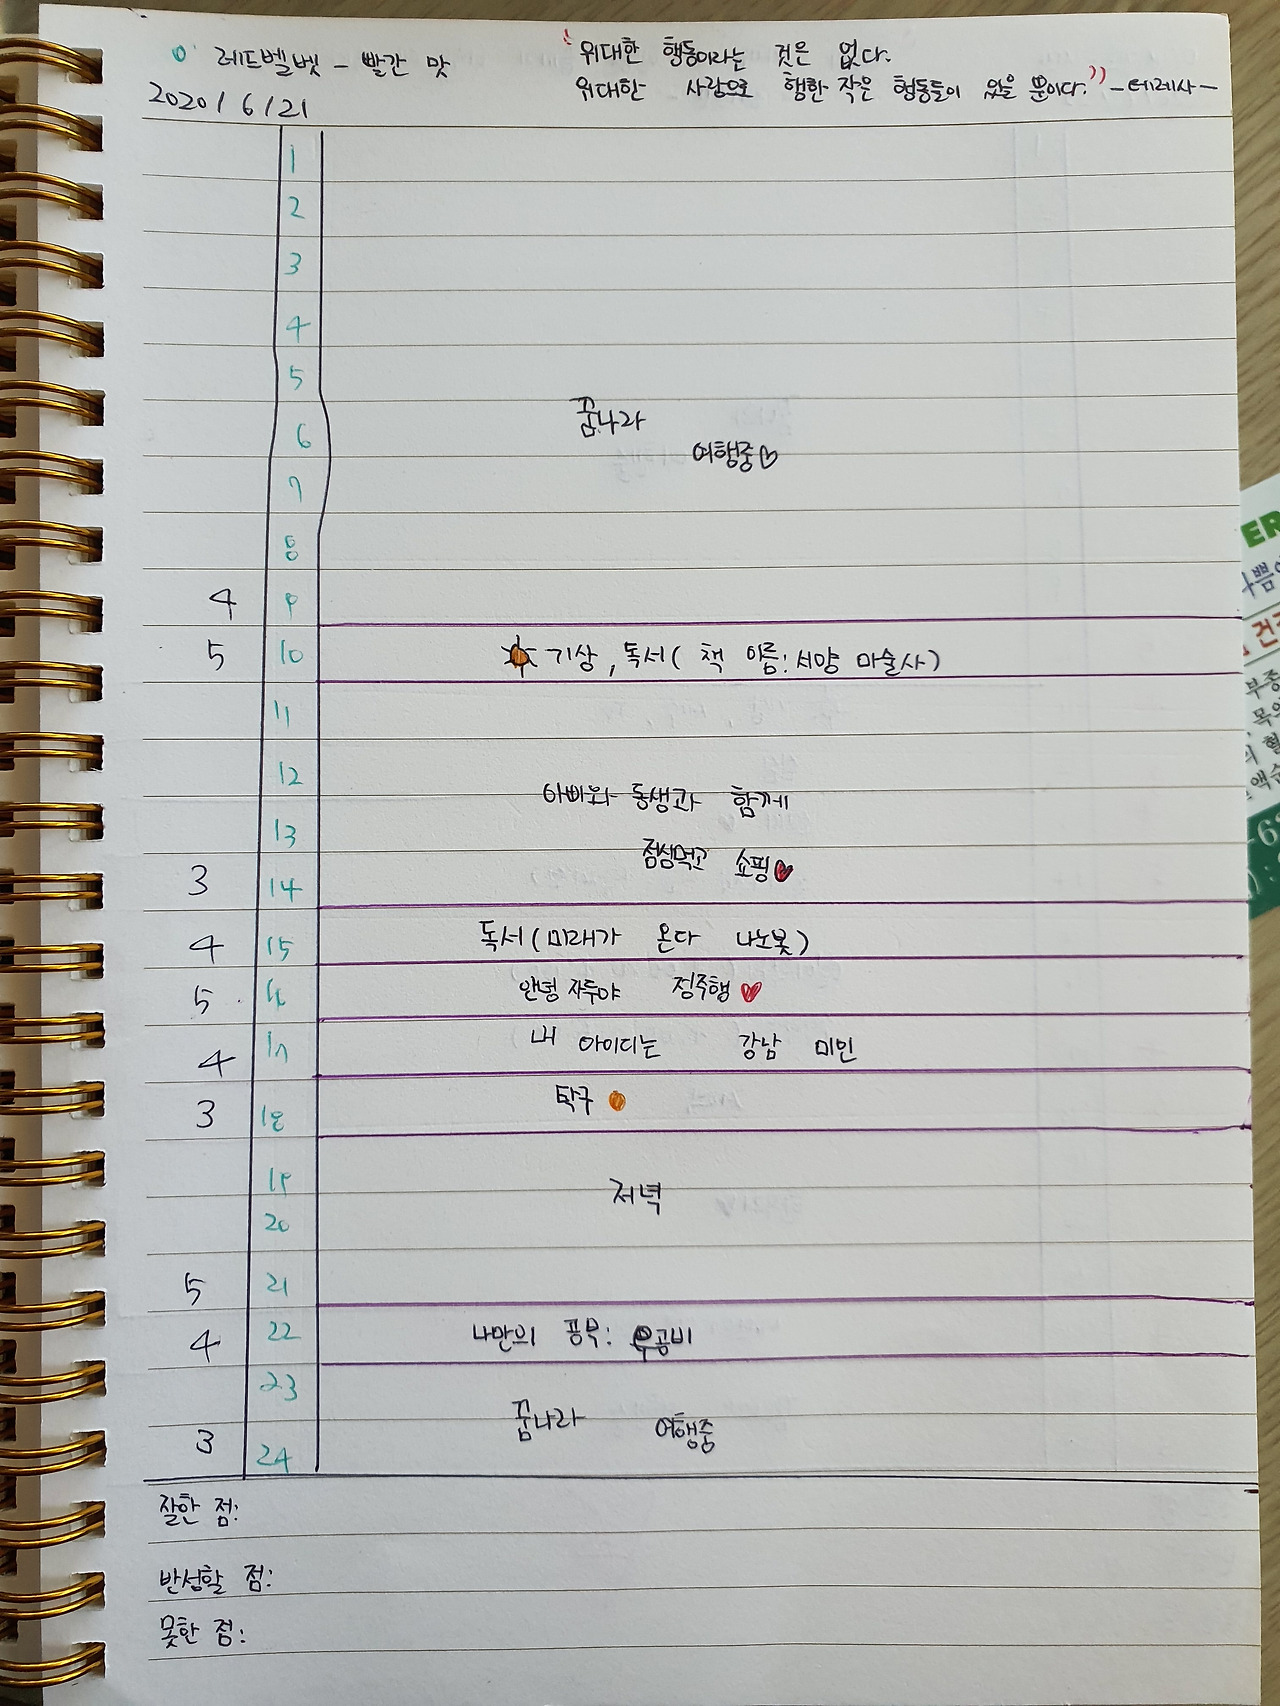 레드벨벳 - 빨간 맛
"위대한 행동이라는 것은 없다.
위대한 사랑으로 행한 작은 행동들이 있을 뿐이다." - 테레사 -
2020 / 6 / 21
1
2
3
4
5
꿈나라
6
여행중♡
7
8
4 9
5 10 기상, 독서( 책 이름: 서양 마술사)
11
12
아빠와 동생과 함께
13
점심먹고 쇼핑♥
3 14
4 15 독서(미래가 온다 나노봇)
5 16 안녕 자두야 정주행♥
4 17 내 아이디는 강남 미인
3 18 탁구
19
저녁
20
5 21
4 22 나만의 공부: 우공비
23
꿈나라 여행중
3 24
잘한 점:
반성할 점:
못한 점:
ER
건
부종
목
의 혈
액순